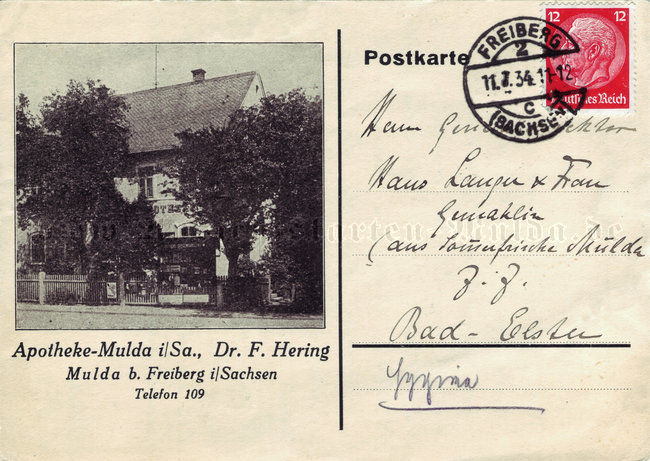 Apotheke-Mulda i/Sa., Dr. F. Hering
Mulda b. Freiberg i/Sachsen
Telefon 109
Postkarte
FREIBERG
2
11.7.34.11-12
c
(SACHSEN)
12 12
Deutsches Reich
Herrn
Hans Langer & Frau
Gemahlin
(aus Sommerfrische Mulda
z. Z.
Bad-Elster